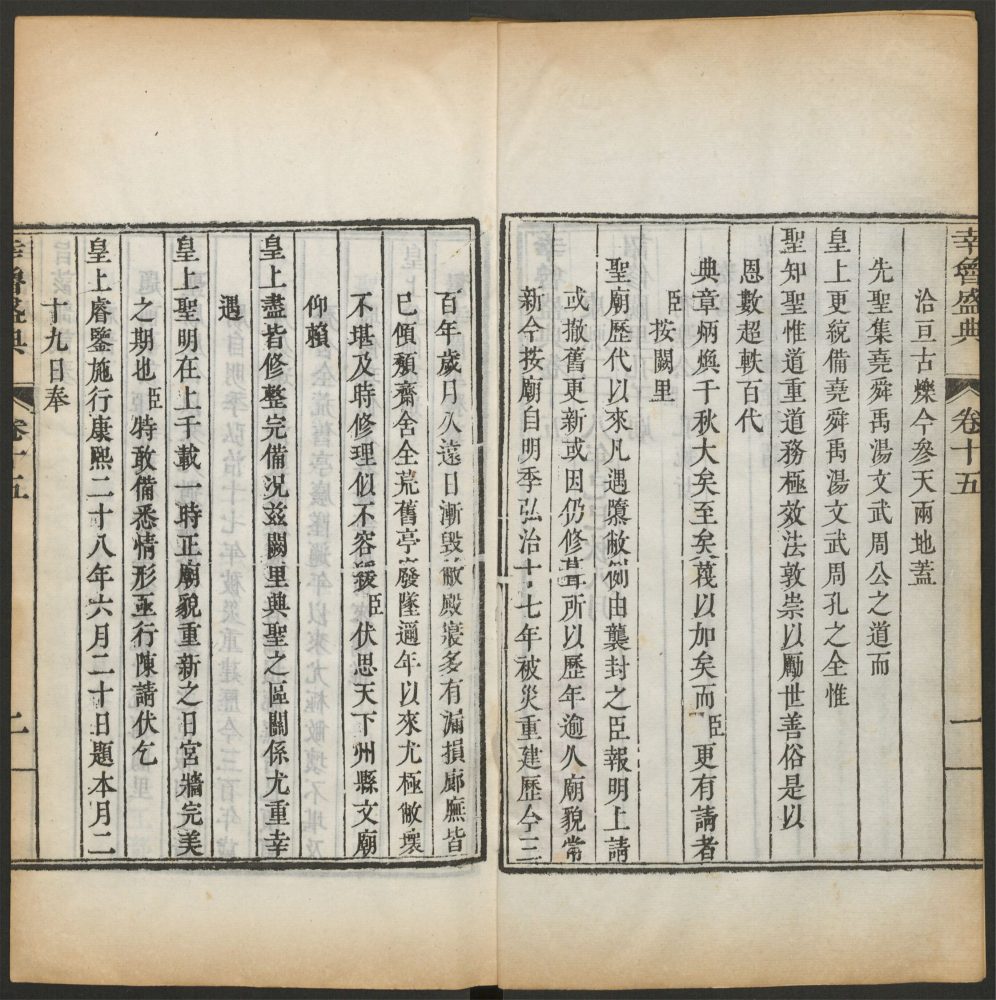 幸魯盛典 卷十五 一
洽亘古爍今參天兩地蓋
先聖集堯舜禹湯文武周公之道而
皇上更統備堯舜禹湯文武周孔之全惟
聖知聖惟道重道務極效法敦崇以勵世善俗是以
恩數超軼百代
典章炳煥千秋大矣至矣蔑以加矣而臣更有請者
臣按闕里
聖廟歷代以來凡遇隳敝例由襲封之臣報明上請
或撤舊更新或因仍修葺所以歷年逾久廟貌常
新今按廟自明季弘治十七年被災重建歷今三
百年歲月久遠日漸毀敝殿寢多有漏損廊廡皆
已傾頹齋舍全荒舊亭廢墜邇年以來尤極敝壞
不堪及時修理似不容緩臣伏思天下州縣文廟
仰賴
皇上盡皆修整完備況茲闕里興聖之區關係尤重幸
遇
皇上聖明在上千載一時正廟貌重新之日宮牆完美
之期也臣特敢備悉情形亟行陳請伏乞
皇上睿鑒施行康熙二十八年六月二十日題本月二
十九日奉
幸魯盛典 卷十五